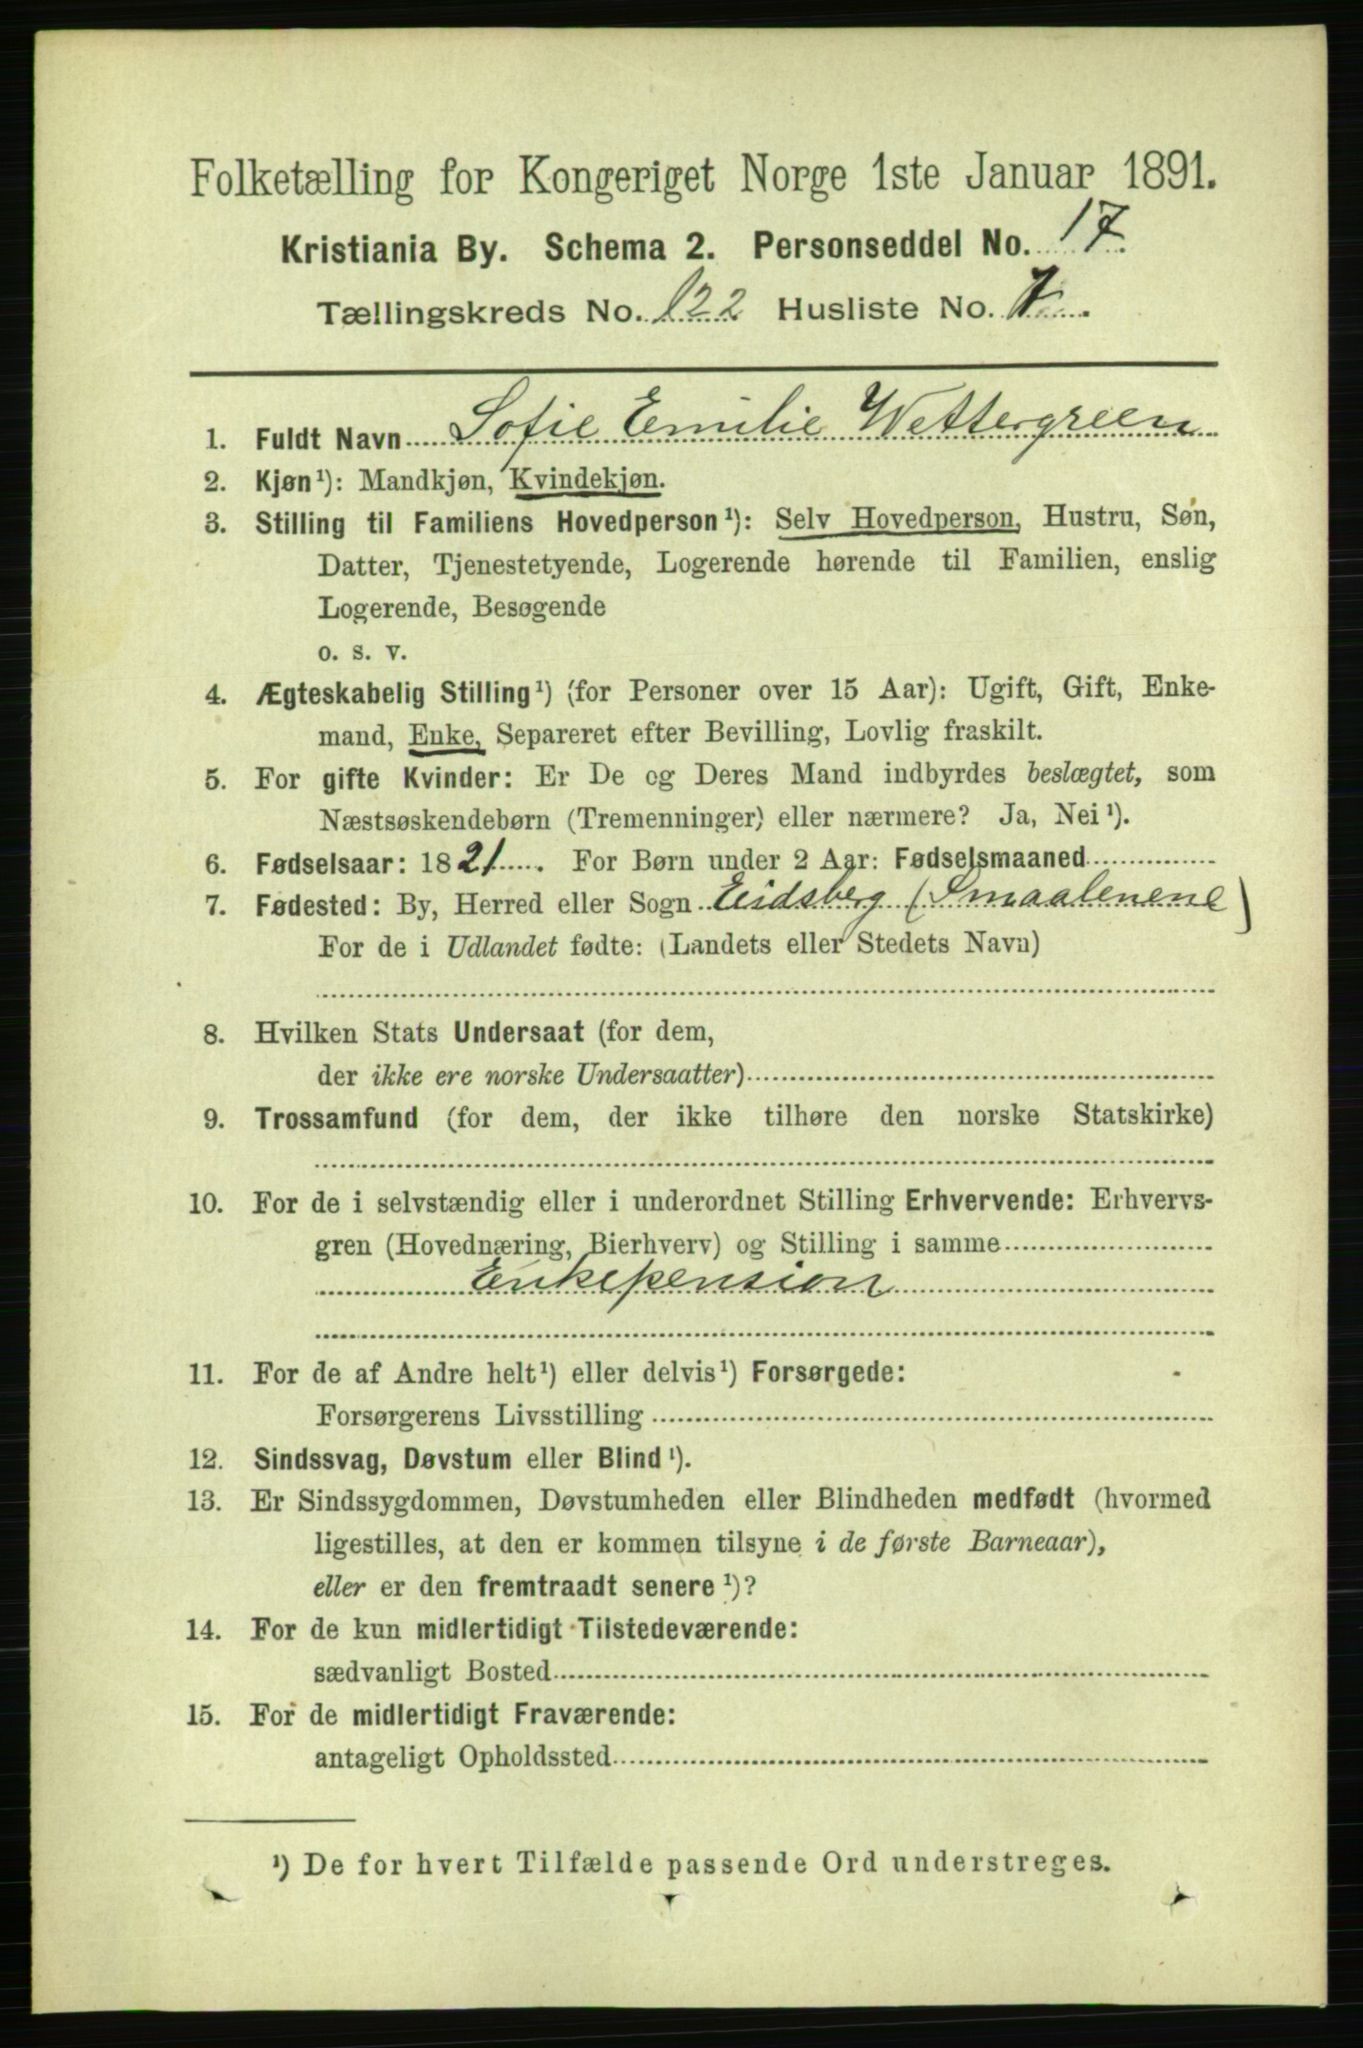 Folketælling for Kongeriget Norge 1ste Januar 1891.
Kristiania By. Schema 2. Personseddel No. 17.
Tællingskreds No. 122 Husliste No.
1. Fuldt Navn Sofie Emilie Wettergreen
2. Kjøn¹): Mandkjøn, Kvindekjøn.
3. Stilling til Familiens Hovedperson¹): Selv Hovedperson, Hustru, Søn,
Datter, Tjenestetyende, Logerende hørende til Familien, enslig
Logerende, Besøgende
o. s. v.
4. Ægteskabelig Stilling¹) (for Personer over 15 Aar): Ugift, Gift, Enke-
mand, Enke, Separeret efter Bevilling, Lovlig fraskilt.
5. For gifte Kvinder: Er De og Deres Mand indbyrdes beslægtet, som
Næstsøskendebørn (Tremenninger) eller nærmere? Ja, Nei¹).
6. Fødselsaar: 1821. For Børn under 2 Aar: Fødselsmaaned
7. Fødested: By, Herred eller Sogn Eidsberg (Smaalenene)
For de i Udlandet fødte: (Landets eller Stedets Navn)
8. Hvilken Stats Undersaat (for dem,
der ikke ere norske Undersaatter)
9. Trossamfund (for dem, der ikke tilhøre den norske Statskirke)
10. For de i selvstændig eller i underordnet Stilling Erhvervende: Erhvervs-
gren (Hovednæring, Bierhverv) og Stilling i samme
Enkepension
11. For de af Andre helt¹) eller delvis¹) Forsørgede:
Forsørgerens Livsstilling
12. Sindssvag, Døvstum eller Blind¹).
13. Er Sindssygdommen, Døvstumheden eller Blindheden medfødt (hvormed
ligestilles, at den er kommen tilsyne i de første Barneaar),
eller er den fremtraadt senere¹)?
14. For de kun midlertidigt Tilstedeværende:
sædvanligt Bosted
15. For de midlertidigt Fraværende:
antageligt Opholdssted
¹) De for hvert Tilfælde passende Ord understreges.